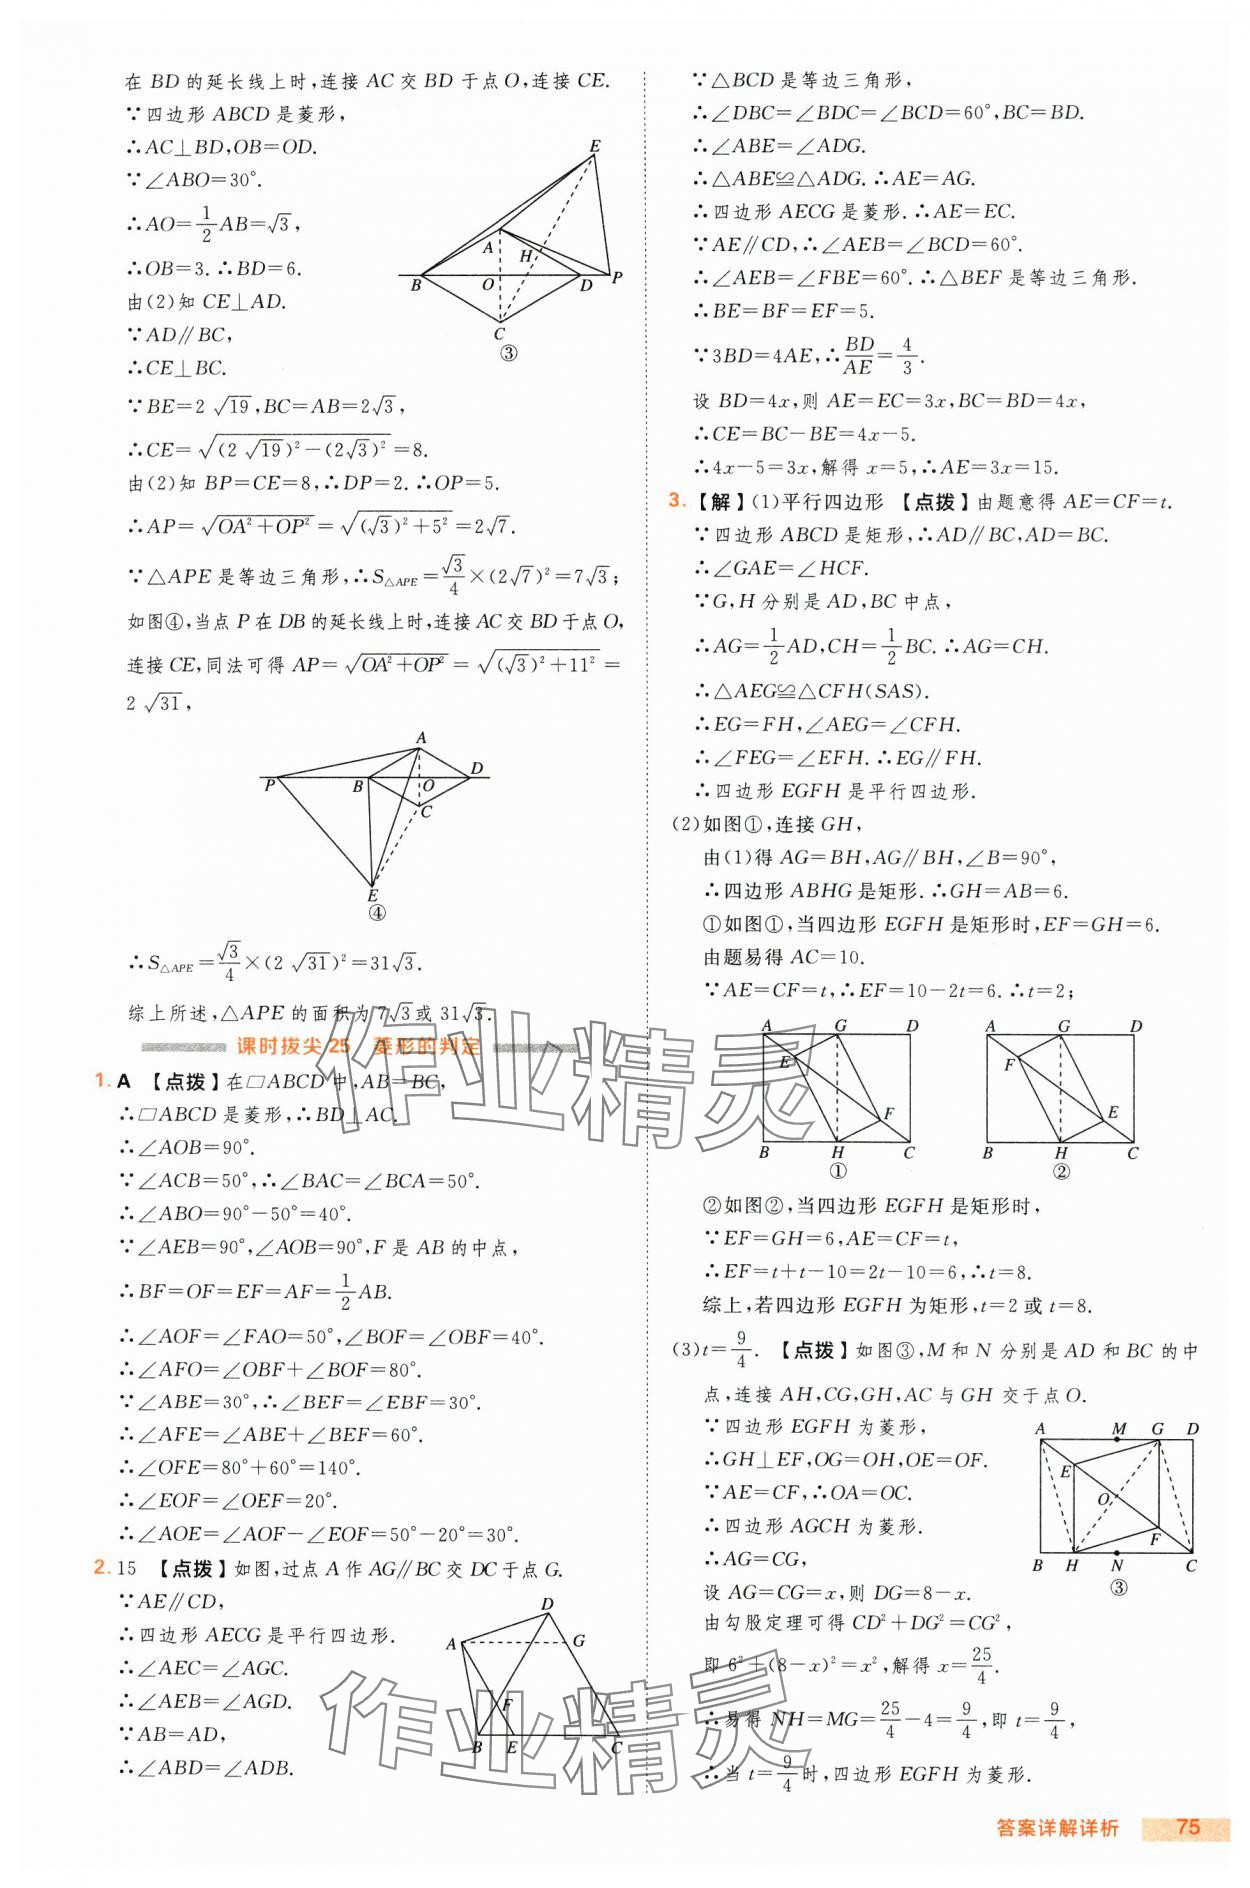 在 BD 的延长线上时,连接 AC 交 BD 于点 O,连接 CE.
∵四边形 ABCD 是菱形,
∴AC⊥BD,OB=OD.
∵∠ABO=30°.
∴AO=1/2AB=√3,
∴OB=3.∴BD=6.
由(2)知 CE⊥AD.
∵AD∥BC,
∴CE⊥BC.
E
A
H
B
O
D
P
C
③
∵BE=2√19,BC=AB=2√3,
∴CE=√((2√19)²-(2√3)²)=8.
由(2)知 BP=CE=8,∴DP=2.∴OP=5.
∴AP=√(OA²+OP²)=√((√3)²+5²)=2√7.
∵△APE 是等边三角形,∴S△APE=√3/4×(2√7)²=7√3;
如图④,当点 P 在 DB 的延长线上时,连接 AC 交 BD 于点 O,
连接 CE,同法可得 AP=√(OA²+OP²)=√((√3)²+11²)=
2√31,
A
P
B
O
D
C
E
④
∴S△APE=√3/4×(2√31)²=31√3.
综上所述,△APE 的面积为 7√3或 31√3.
课时拔尖 25 菱形的判定
1. A 【点拨】在□ABCD 中,AB=BC,
∴□ABCD 是菱形,∴BD⊥AC.
∴∠AOB=90°.
∵∠ACB=50°,∴∠BAC=∠BCA=50°.
∴∠ABO=90°-50°=40°.
∵∠AEB=90°,∠AOB=90°,F 是 AB 的中点,
∴BF=OF=EF=AF=1/2AB.
∴∠AOF=∠FAO=50°,∠BOF=∠OBF=40°.
∴∠AFO=∠OBF+∠BOF=80°.
∵∠ABE=30°,∴∠BEF=∠EBF=30°.
∴∠AFE=∠ABE+∠BEF=60°.
∴∠OFE=80°+60°=140°.
∴∠EOF=∠OEF=20°.
∴∠AOE=∠AOF-∠EOF=50°-20°=30°.
2. 15 【点拨】如图,过点 A 作 AG∥BC 交 DC 于点 G.
∵AE∥CD,
∴四边形 AECG 是平行四边形.
∴∠AEC=∠AGC.
∴∠AEB=∠AGD.
∵AB=AD,
∴∠ABD=∠ADB.
D
A
G
F
B
E
C
∵△BCD 是等边三角形,
∴∠DBC=∠BDC=∠BCD=60°,BC=BD.
∴∠ABE=∠ADG.
∴△ABE≌△ADG.∴AE=AG.
∴四边形 AECG 是菱形.∴AE=EC.
∵AE∥CD,∴∠AEB=∠BCD=60°.
∴∠AEB=∠FBE=60°.∴△BEF 是等边三角形.
∴BE=BF=EF=5.
∵3BD=4AE,∴BD/AE=4/3.
设 BD=4x,则 AE=EC=3x,BC=BD=4x,
∴CE=BC-BE=4x-5.
∴4x-5=3x,解得 x=5,∴AE=3x=15.
3. 【解】(1)平行四边形 【点拨】由题意得 AE=CF=t.
∵四边形 ABCD 是矩形,∴AD∥BC,AD=BC.
∴∠GAE=∠HCF.
∵G,H 分别是 AD,BC 中点,
∴AG=1/2AD,CH=1/2BC.∴AG=CH.
∴△AEG≌△CFH(SAS).
∴EG=FH,∠AEG=∠CFH.
∴∠FEG=∠EFH.∴EG∥FH.
∴四边形 EGFH 是平行四边形.
(2)如图①,连接 GH,
由(1)得 AG=BH,AG∥BH,∠B=90°,
∴四边形 ABHG 是矩形.∴GH=AB=6.
①如图①,当四边形 EGFH 是矩形时,EF=GH=6.
由题易得 AC=10.
∵AE=CF=t,∴EF=10-2t=6.∴t=2;
A G D
E
F
B H C
①
A G D
F
E
B H C
②
②如图②,当四边形 EGFH 是矩形时,
∵EF=GH=6,AE=CF=t,
∴EF=t+t-10=2t-10=6,∴t=8.
综上,若四边形 EGFH 为矩形,t=2 或 t=8.
(3)t=9/4. 【点拨】如图③,M 和 N 分别是 AD 和 BC 的中
点,连接 AH,CG,GH,AC 与 GH 交于点 O.
∵四边形 EGFH 为菱形,
∴GH⊥EF,OG=OH,OE=OF.
∵AE=CF,∴OA=OC.
∴四边形 AGCH 为菱形.
∴AG=CG,
设 AG=CG=x,则 DG=8-x.
A M G D
E
O
F
B H N C
③
由勾股定理可得 CD²+DG²=CG²,
即 6²+(8-x)²=x²,解得 x=25/4.
∴易得 NH=MG=25/4-4=9/4,即 t=9/4,
∴当 t=9/4时,四边形 EGFH 为菱形.
作业精灵
作业精灵
答案详解详析 75